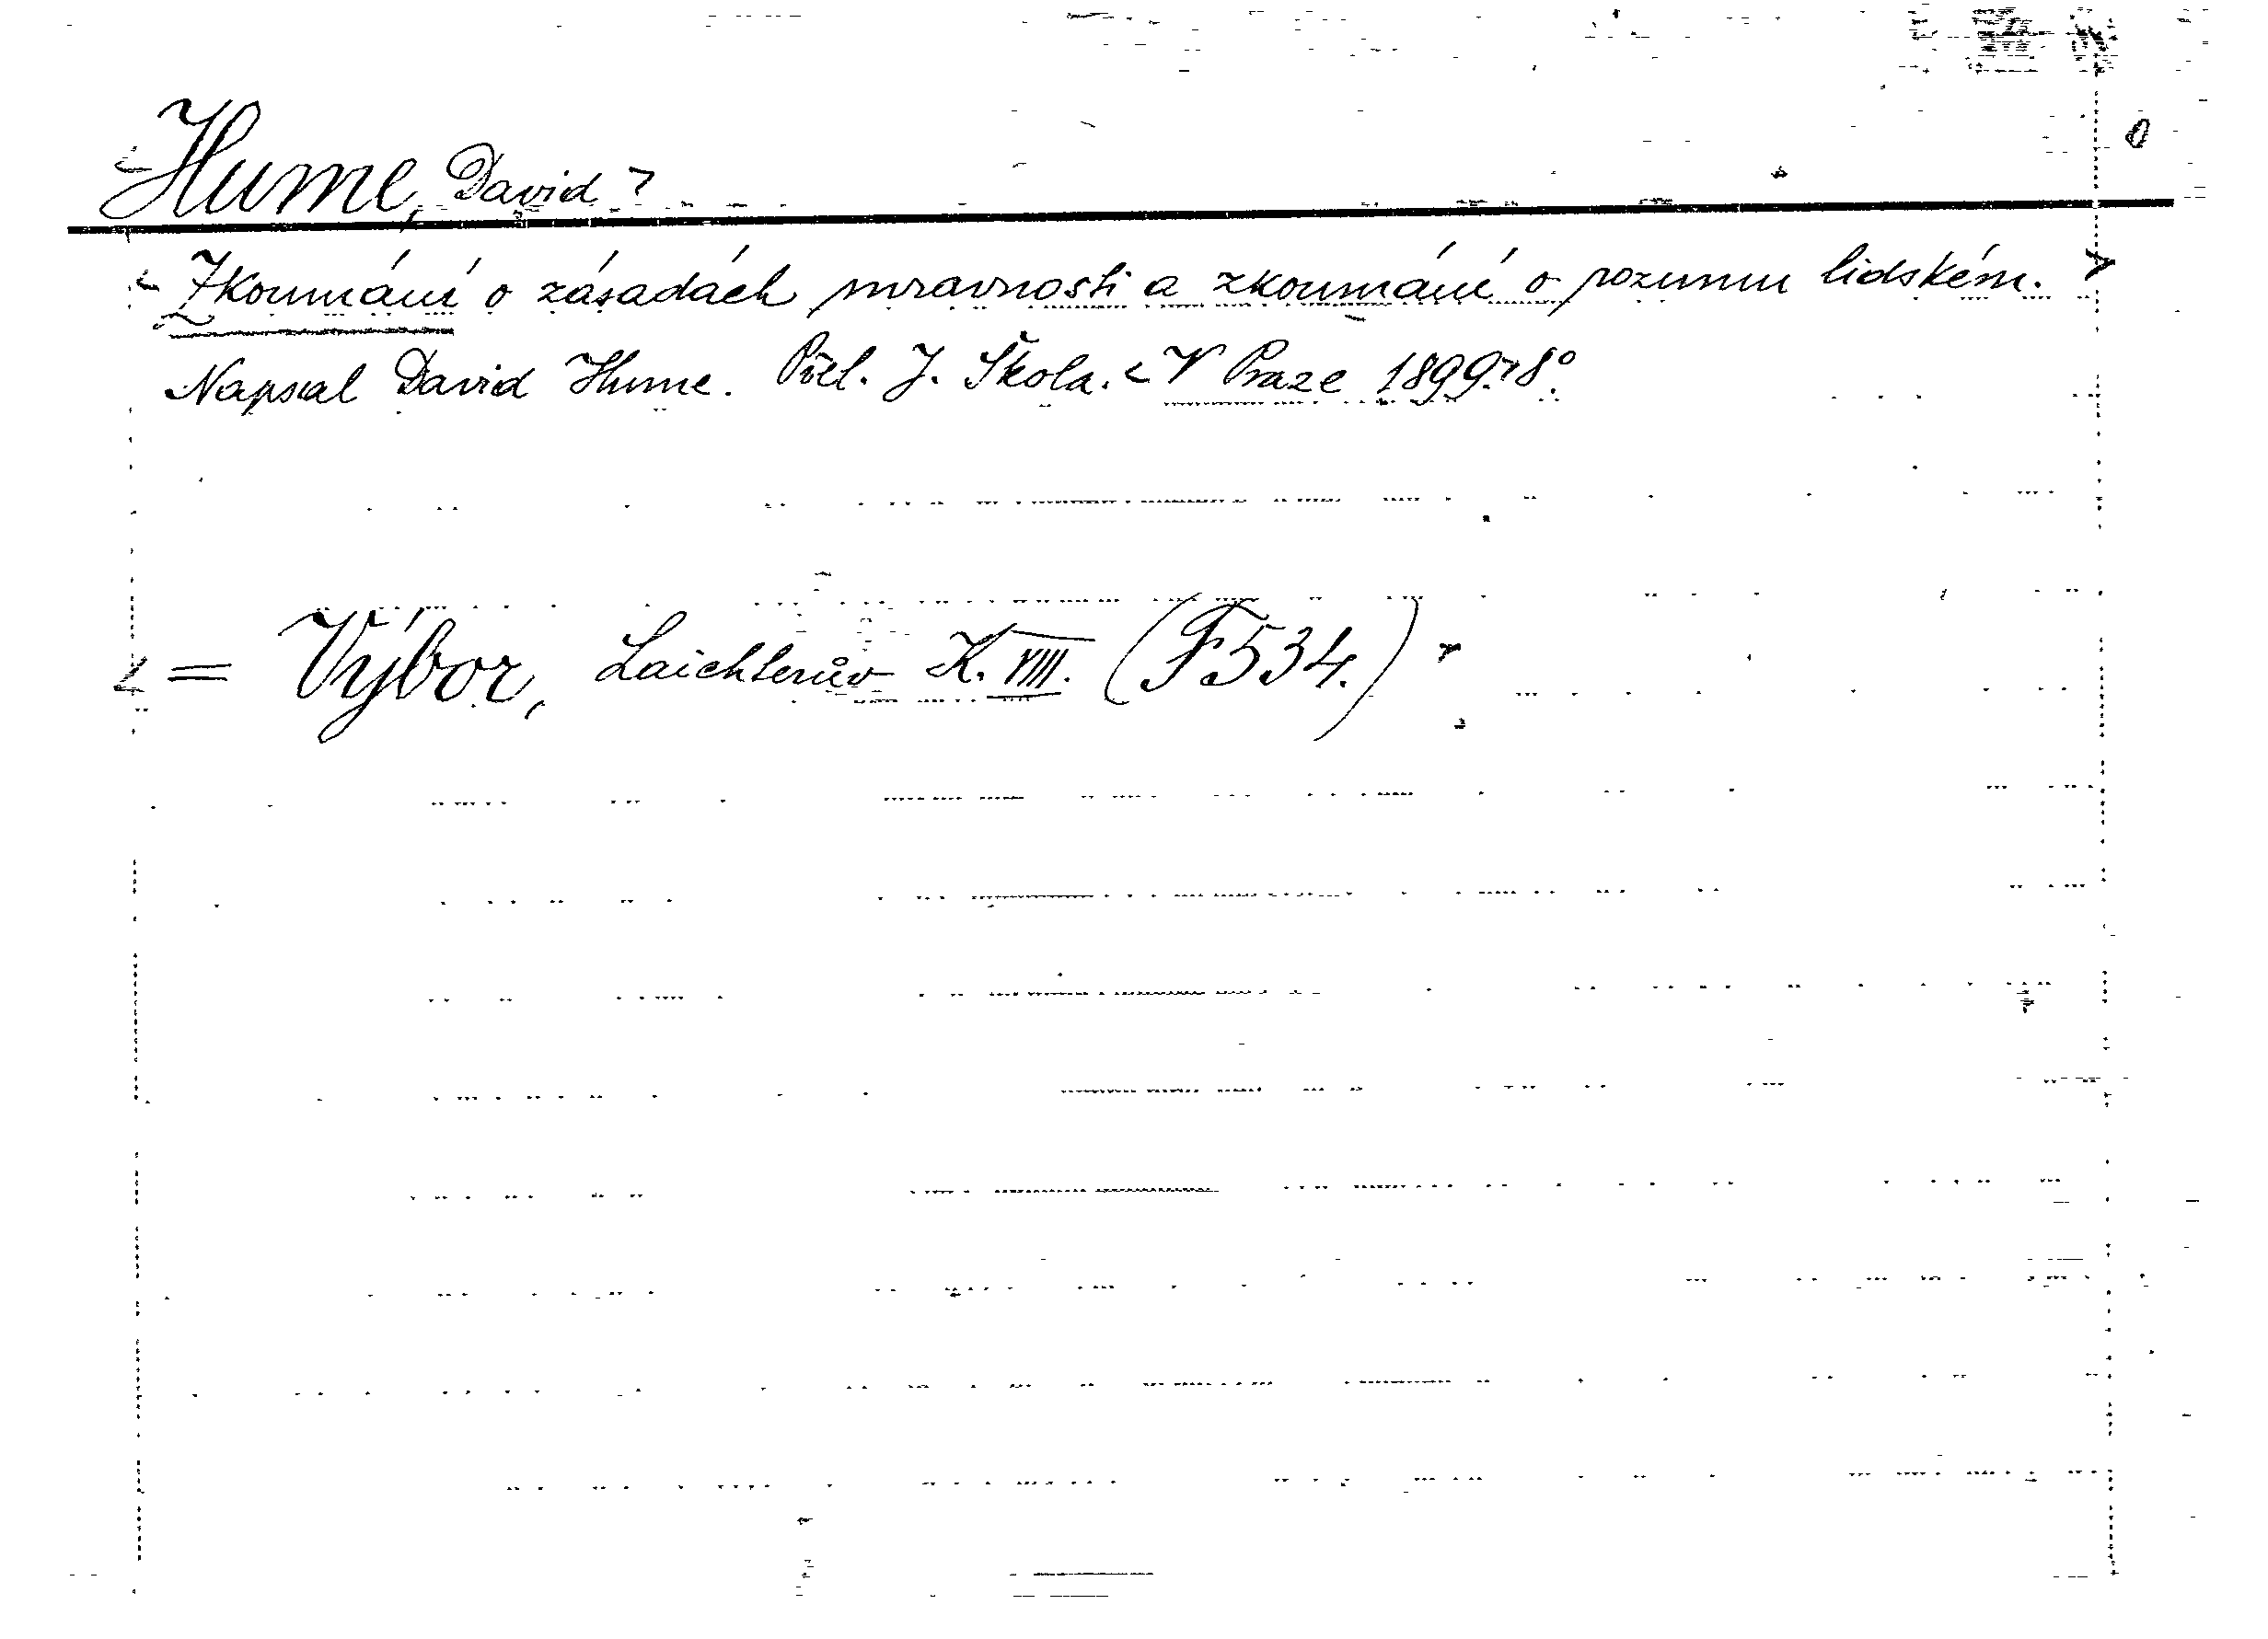 Hume, David
Zkoumání o zásadách mravnosti a zkoumání o rozumu lidském.
Napsal David Hume. Přel. J. Škola. V Praze 1899. 8°.
= Výbor, Laichterův K. VIII. (F534.)